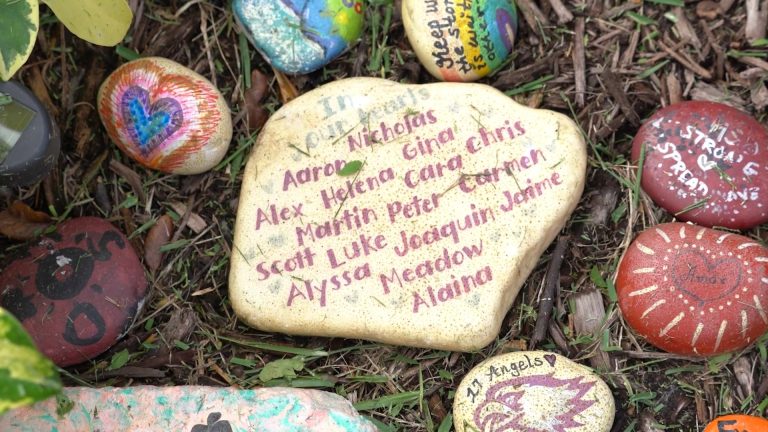 Keep up
the stum
In
our hearts
Nicholas
Gina Chris
Aaron
Alex Helena Cara Carmen
Martin Peter
Scott Luke Joaquin Jaime
Alyssa Meadow
Alaina
MSD
STRONG
SPREAD
17 Angels